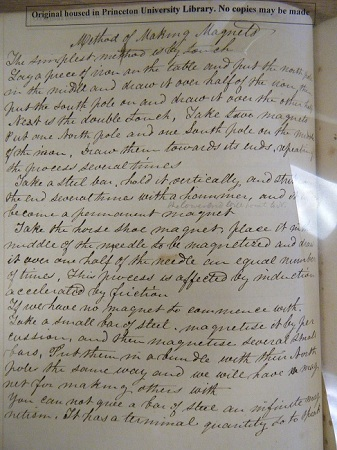 Original housed in Princeton University Library. No copies may be made
Method of Making Magnets
The simplest method is by touch
Lay a piece of iron on the table and put the north pole
in the middle and draw it over half of the iron, then
put the South pole on and draw it over the other half
Next is the double touch. Take two magnets
Put one North pole and one South pole on the middle
of the iron. Draw them towards its ends, repeating
the process several times
Take a steel bar, hold it vertically, and strike
the end several times with a hammer, and it
become a permanent magnet
Take the horse shoe magnet, place it in
middle of the needle to be magnetized and draw
it over one half of the needle an equal number
of times. This process is affected by induction
accelerated by friction
If we have no magnet to commence with.
Take a small bar of steel. magnetise it by per
cussion, and then magnetise several small
bars, Put them in a bundle with their North
poles the same way and we will have a mag
net for making others with
You can not give a bar of steel an infinite mag
netism. It has a terminal quantity so to speak